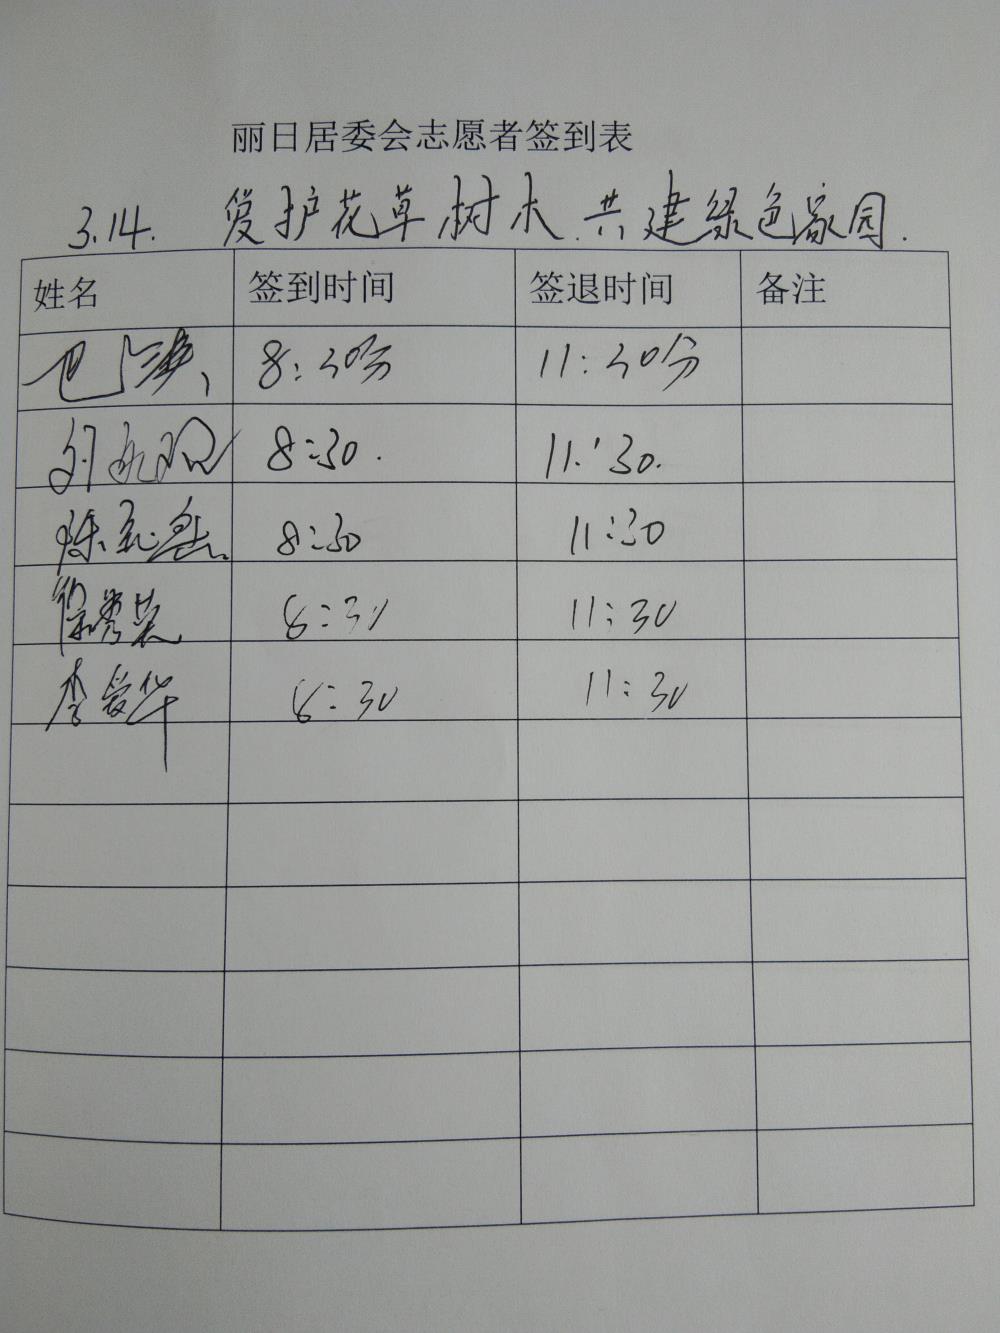 丽日居委会志愿者签到表
3.14. 爱护花草树木.共建绿色家园.
姓名 签到时间 签退时间 备注
8:30分 11:30分
8:30. 11:30.
陈 8:30 11:30
徐秀 8:30 11:30
李爱华 8:30 11:30